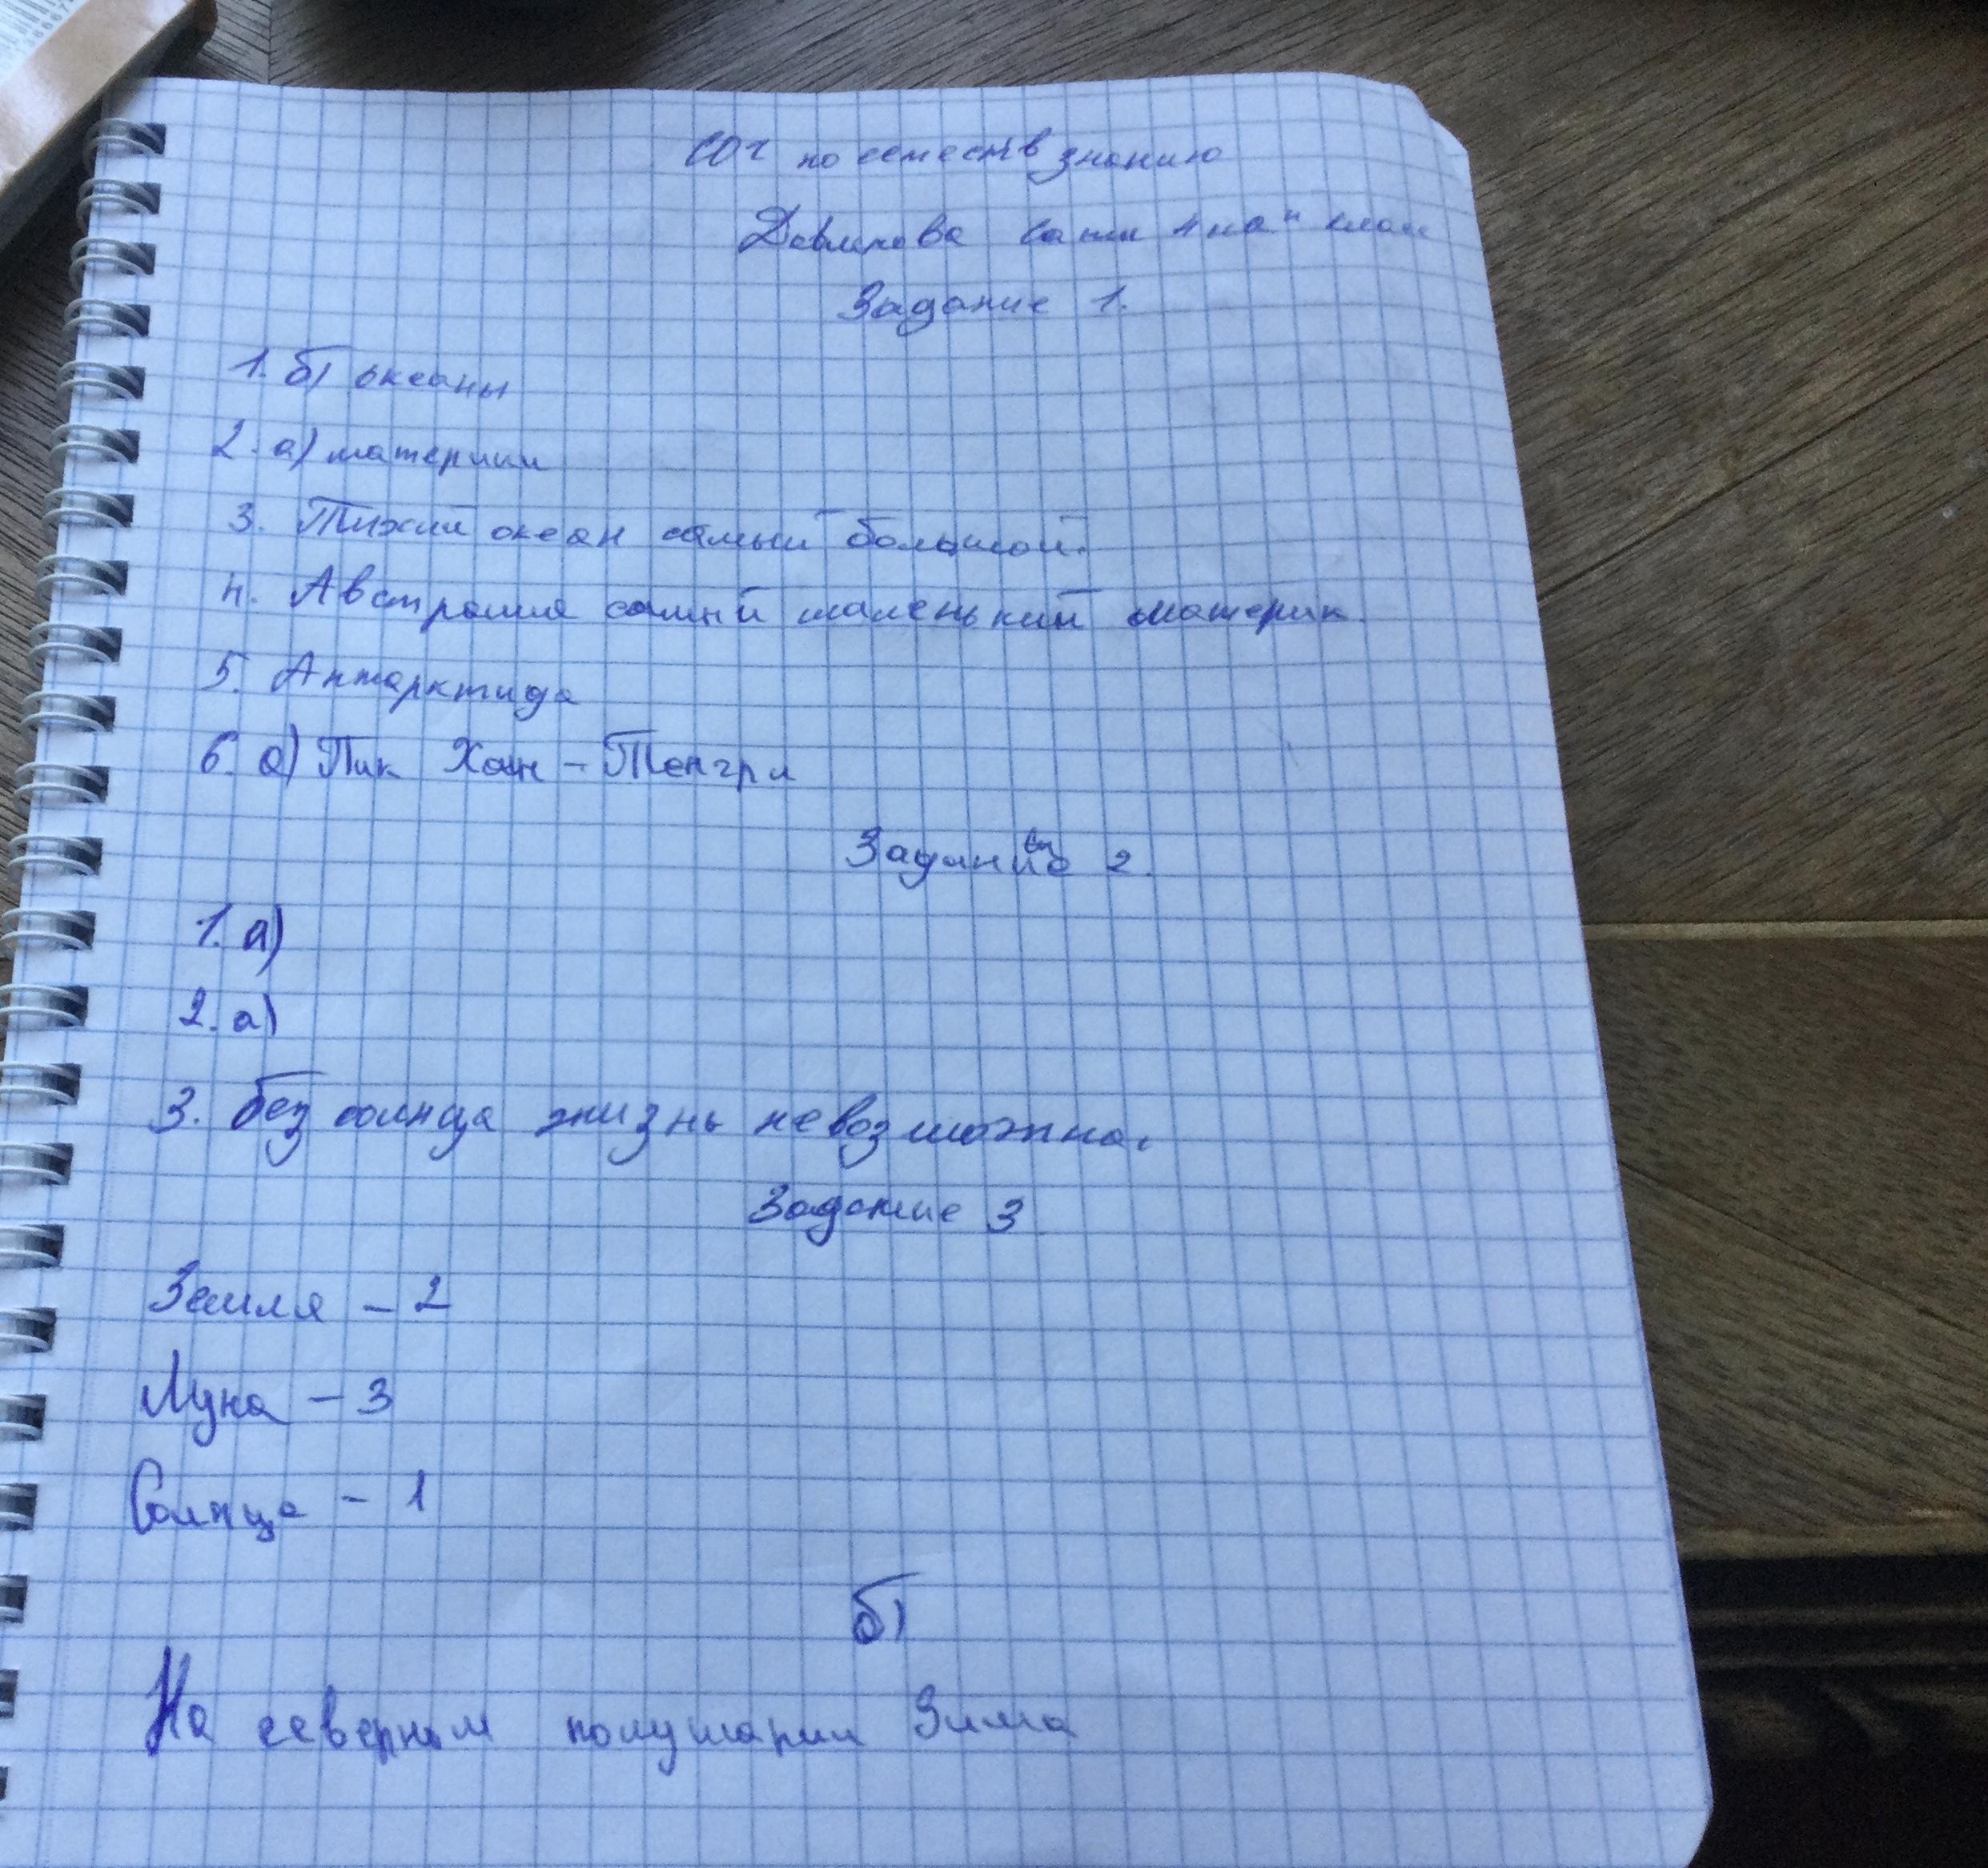 СОЧ по естествзнанию
Давлетова 4 "а" класс
Задание 1.
1. б) океаны
2. а) материки
3. Тихий океан самый большой.
4. Австралия самый маленький материк.
5. Антарктида
6. а) Пик Хан - Тенгри
Задание 2.
1. а)
2. а)
3. без солнца жизнь невозможна.
Задание 3
Земля - 2
Луна - 3
Солнце - 1
б)
На северном полушарии Зима